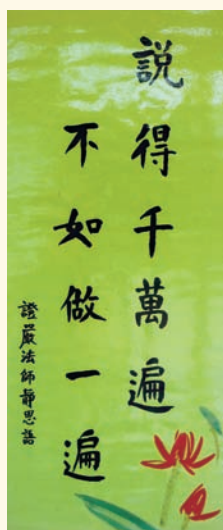 說得千萬遍
不如做一遍
證嚴法師靜思語